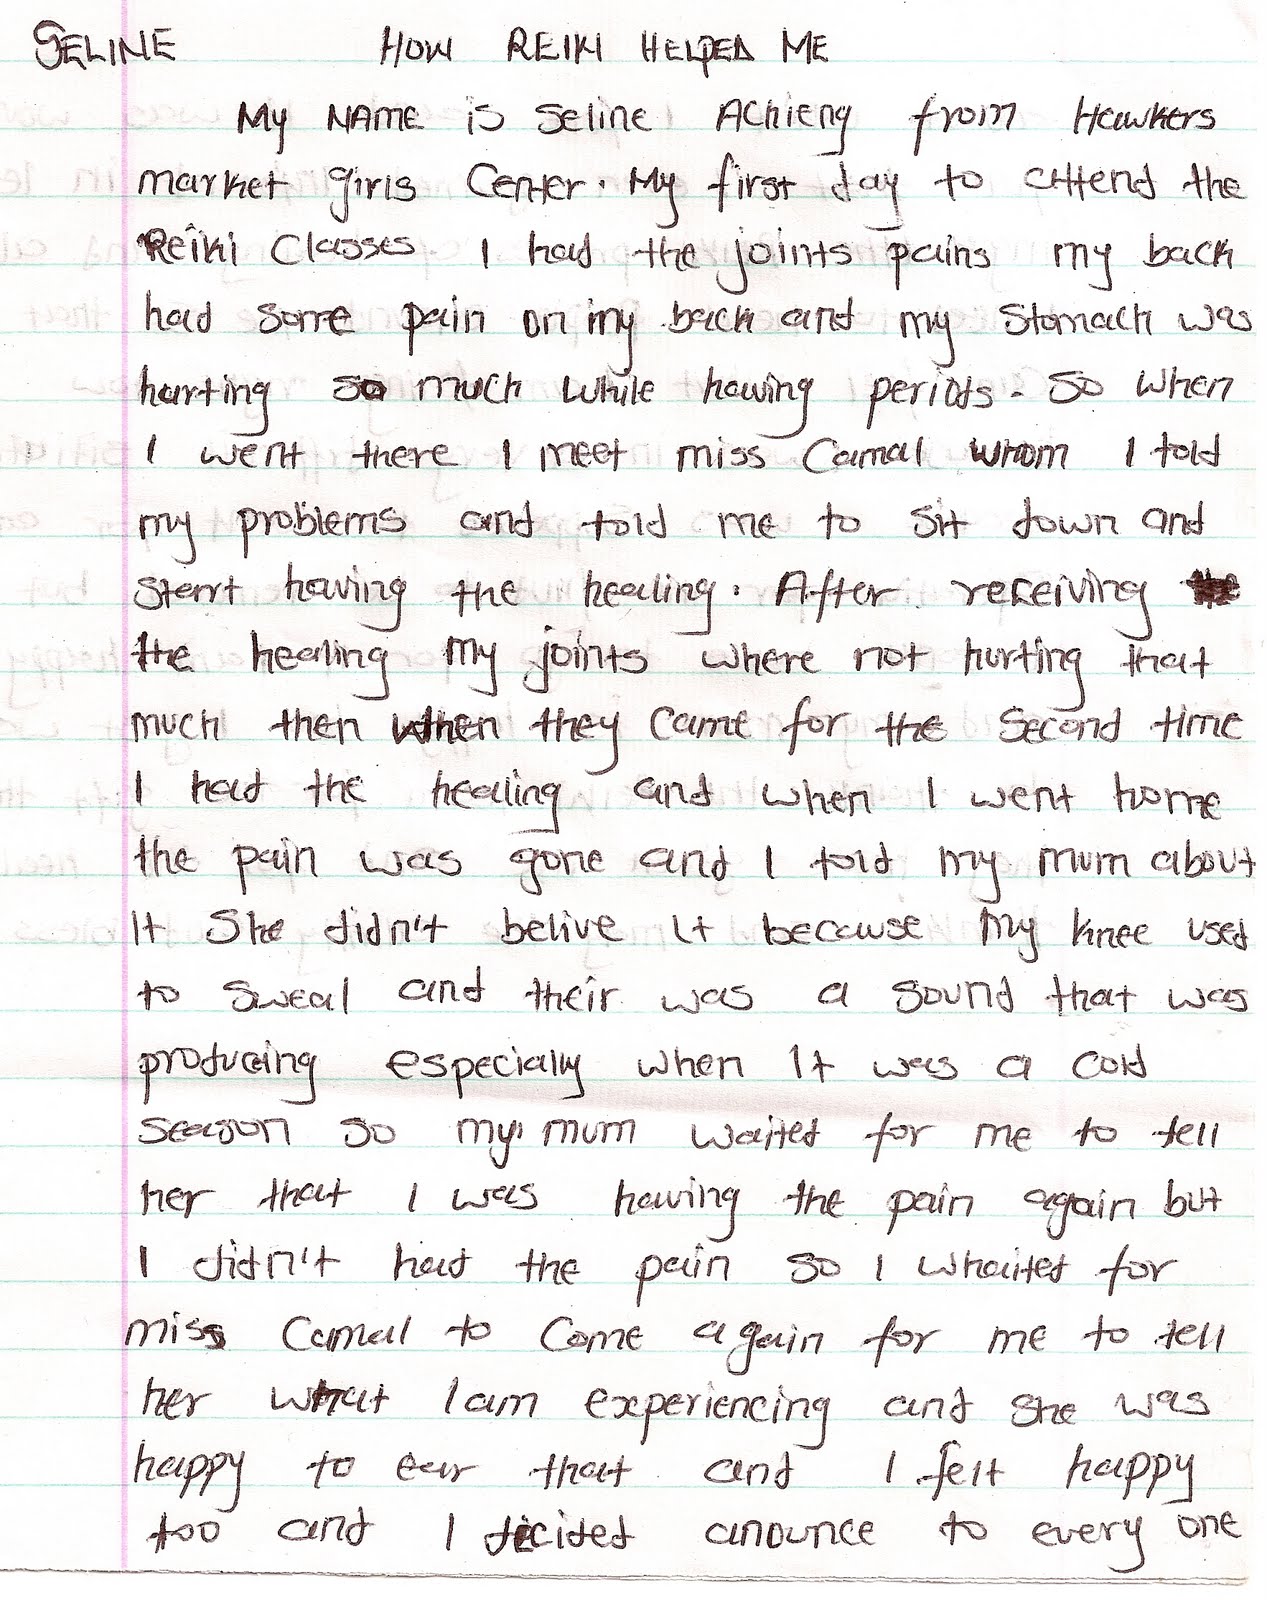 SELINE HOW REIKI HELPED ME
My NAME is Seline Achieng from Hawkers
market girls Center. My first day to attend the
Reiki Classes I had the joints pains my back
had some pain on my back and my Stomach was
harting so much while having periods. So when
I went there I meet miss Camal whom I told
my problems and told me to sit down and
start having the healing. After receiving
the healing my joints where not hurting that
much then when they came for the second time
I had the healing and when I went home
the pain was gone and I told my mum about
It She didn't belive It because my knee used
to sweal and their was a sound that was
producing especially when It was a cold
season so my mum waited for me to tell
her that I was having the pain again but
I didn't had the pain so I whaited for
miss Camal to Come again for me to tell
her what I am experiencing and she was
happy to ear that and I felt happy
too and I dicided anounce to every one